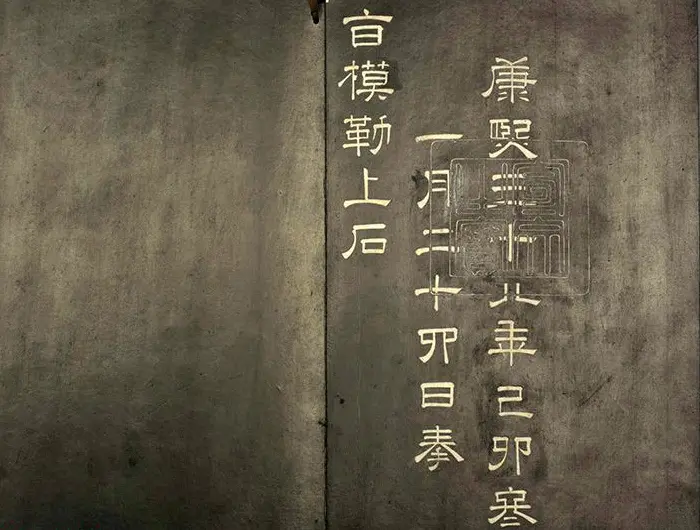 康熙三十八年己卯寒
一月二十四日奉
旨模勒上石